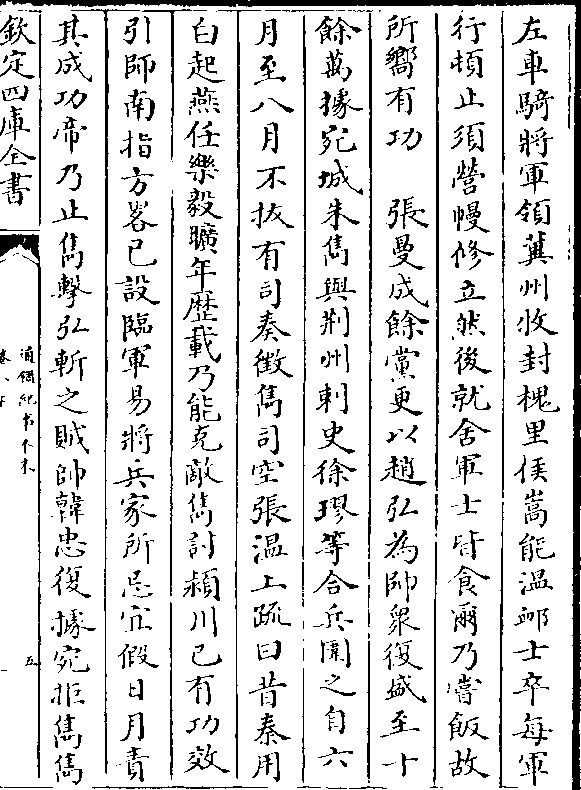 左車騎將軍領冀州牧封槐里侯嵩能温䘏士卒每軍
行頓止須營幔修立然後就舍軍士皆食爾乃嘗飯故
所嚮有功　張曼成餘黨更以趙弘為帥衆復盛至十
餘萬據宛城朱儁與荆州刺史徐璆等合兵圍之自六
月至八月不拔有司奏徵儁司空張温上疏曰昔秦用
白起燕任樂毅曠年歴載乃能克敵儁討潁川已有功效
引師南指方畧已設臨軍易將兵家所忌宜假日月責
其成功帝乃止儁擊弘斬之賊帥韓忠復據宛拒儁儁
欽定四庫全書
通鑑紀事本末
五